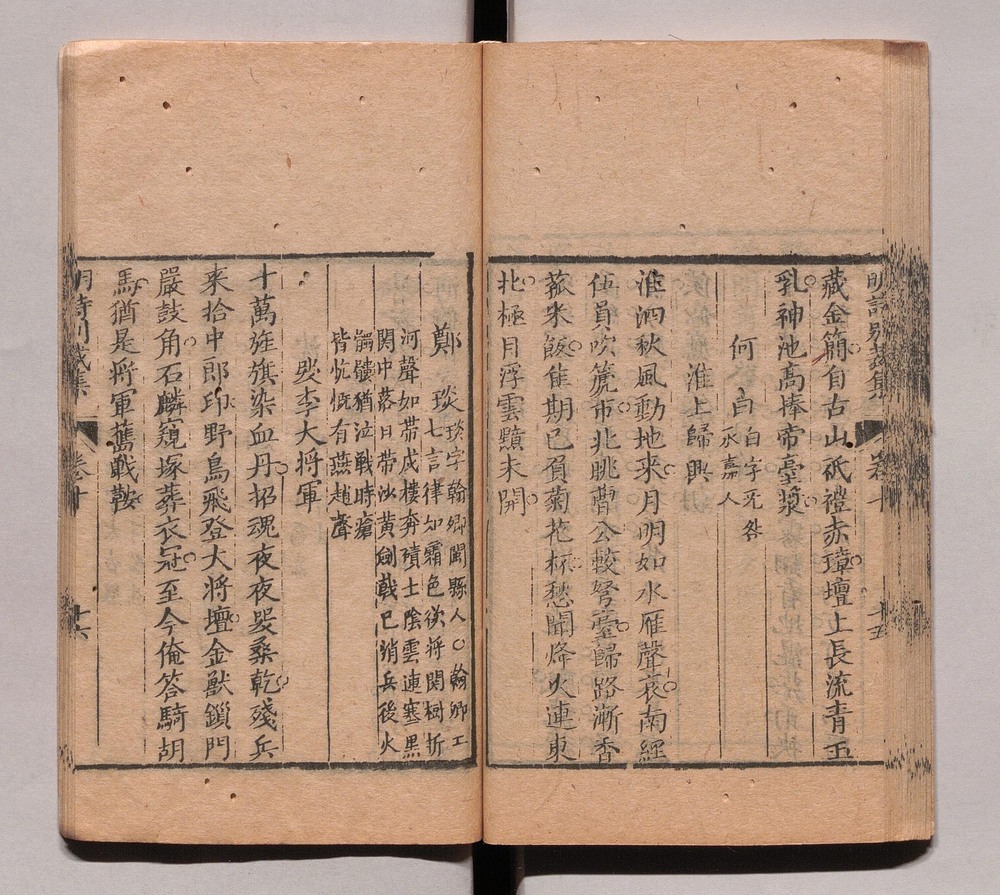 明詩別裁集 卷十 十五
藏金簡自古山祇禮赤璋壇上長流青玉
乳神池高捧帝臺漿
何白 白字无咎
永嘉人
淮上歸興
淮泗秋風動地來月明如水雁聲哀南經
伍員吹箎市北眺曹公較弩臺歸路漸香
菰米飯佳期已負菊花杯愁聞烽火連東
北極目浮雲黯未開
鄭琰 琰字翰卿閩縣人○翰卿工
七言律如霜色欲將関樹折
河聲如帶戍樓奔磧士陰雲連塞黒
関中落日帶沙黄劍戟已銷兵後火
髑髏猶泣戰時瘡
皆忼慨有燕趙聲
哭李大將軍
十萬旌旗染血丹招魂夜夜哭桑乾殘兵
來拾中郎印野鳥飛登大將壇金獸鎖門
嚴鼓角石麟窺塚葬衣冠至今俺答騎胡
馬猶是將軍舊戰鞍
明詩別裁集 卷十 十六